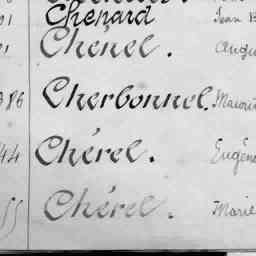 Chenard Jean
Chénel. Augu
86 Cherbonnel. Mauri
44 Chérel. Eugène
55 Chérel. Marie